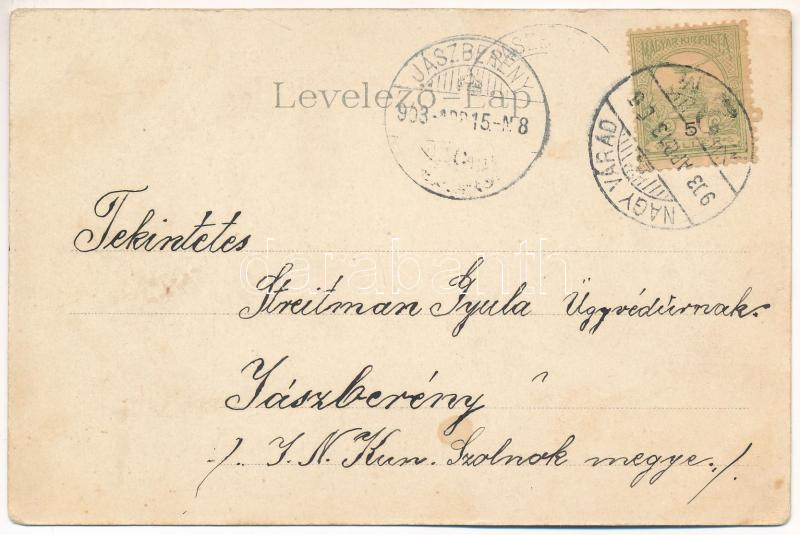 Levelező-Lap
JÁSZBERÉNY
903 APR 15.-N8
MAGYAR KIR. POSTA
5
NAGYVÁRAD
903 APR
Tekintetes
Streitman Gyula Ügyvédúrnak.
Jászberény
/. J. N. Kun. Szolnok megye./.
darabanth